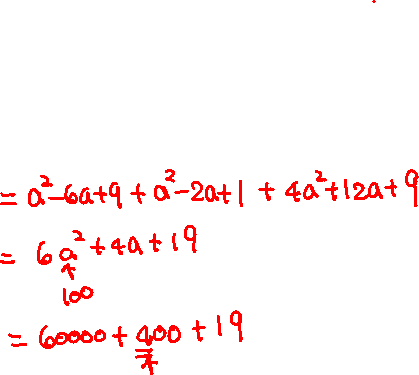 = a²-6a+9 + a²-2a+1 + 4a²+12a+9
= 6a²+4a+19
100
= 60000 + 400 + 19